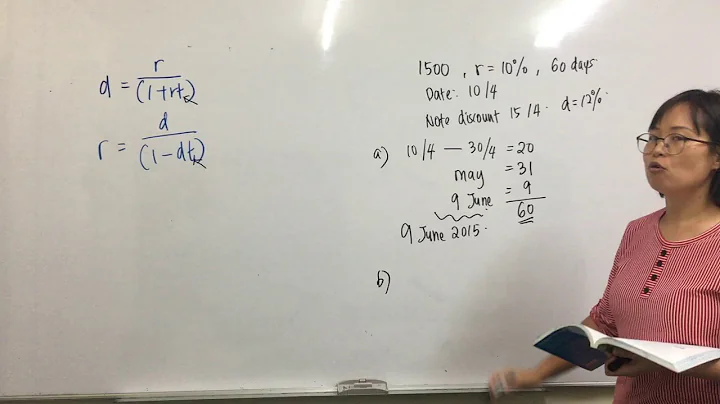 d = r/(1+rt)
r = d/(1-dt)
1500 , r = 10% , 60 days
Date: 10/4
Note discount 15/4. d=12%.
a) 10/4 — 30/4 = 20
may = 31
9 June = 9
60
9 June 2015.
b)